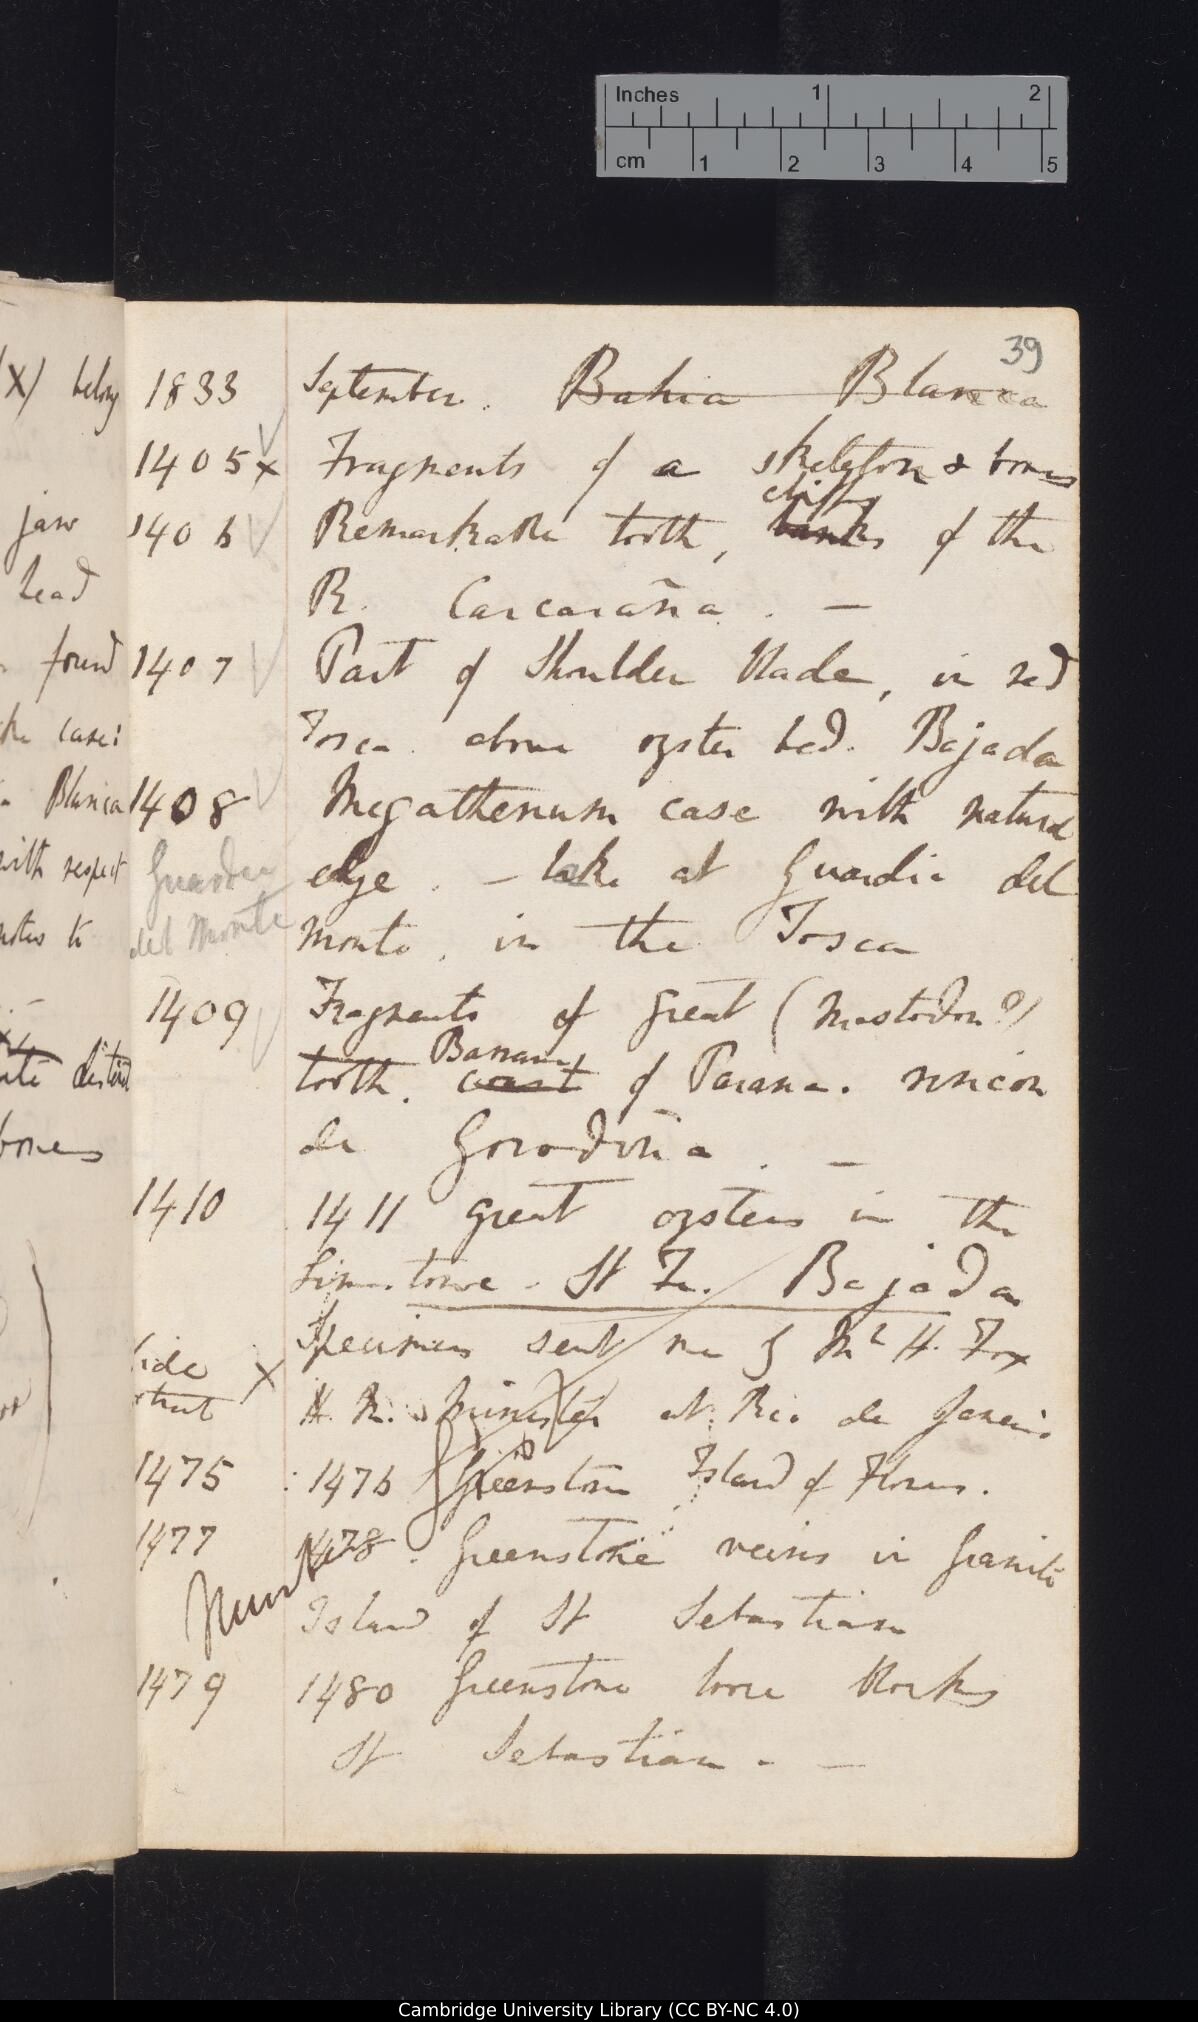 Inches 1 2
cm 1 2 3 4 5
39
(X) belong
jaw
head
found
the case:
Blanca
with respect
notes to
distinct
bones
1833 September. Bahia Blanca
1405 x Fragments of a skeleton & bones
cliffs
1406 Remarkable tooth, banks of the
R. Carcaraña. —
1407 Part of Shoulder blade, in red
Tosca above oyster bed. Bajada
1408 Megatherium case with natural
Guardia edge. — lake at Guardia del
del Monte Monte, in the Tosca
1409 Fragments of great (Mastodon?)
tooth. coast of Parana. rincon
de Gorodona. —
1410 1411 great oysters in the
Limestone. St Fe. Bajada
Specimens sent me by Mr H. Fox
X H. M. Minister at Rio de Janeiro
1475 : 1476 Greenstone Island of Flores.
1477 1478. Greenstone veins in Granite
Island of St Sebastian
1479 1480 Greenstone loose blocks
St Sebastian. —
Cambridge University Library (CC BY-NC 4.0)